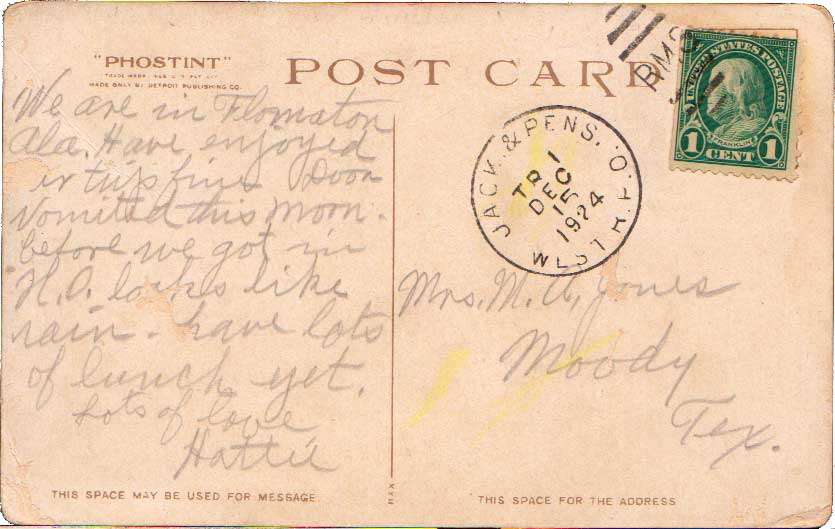 "PHOSTINT"
MADE ONLY BY DETROIT PUBLISHING CO.
POST CARD
We are in Flomaton
Ala. Have enjoyed
r trip fine Doon
Vomited this Morn.
before we got in
N.O. looks like
rain - have lots
of lunch yet.
Lots of love
Hattie
THIS SPACE MAY BE USED FOR MESSAGE.
RMS
UNITED STATES POSTAGE
FRANKLIN
1 CENT 1
JACK. & PENS. R.P.O.
TR 1
DEC
15
1924
WEST
Mrs. M. A. Jones
Moody
Tex.
THIS SPACE FOR THE ADDRESS